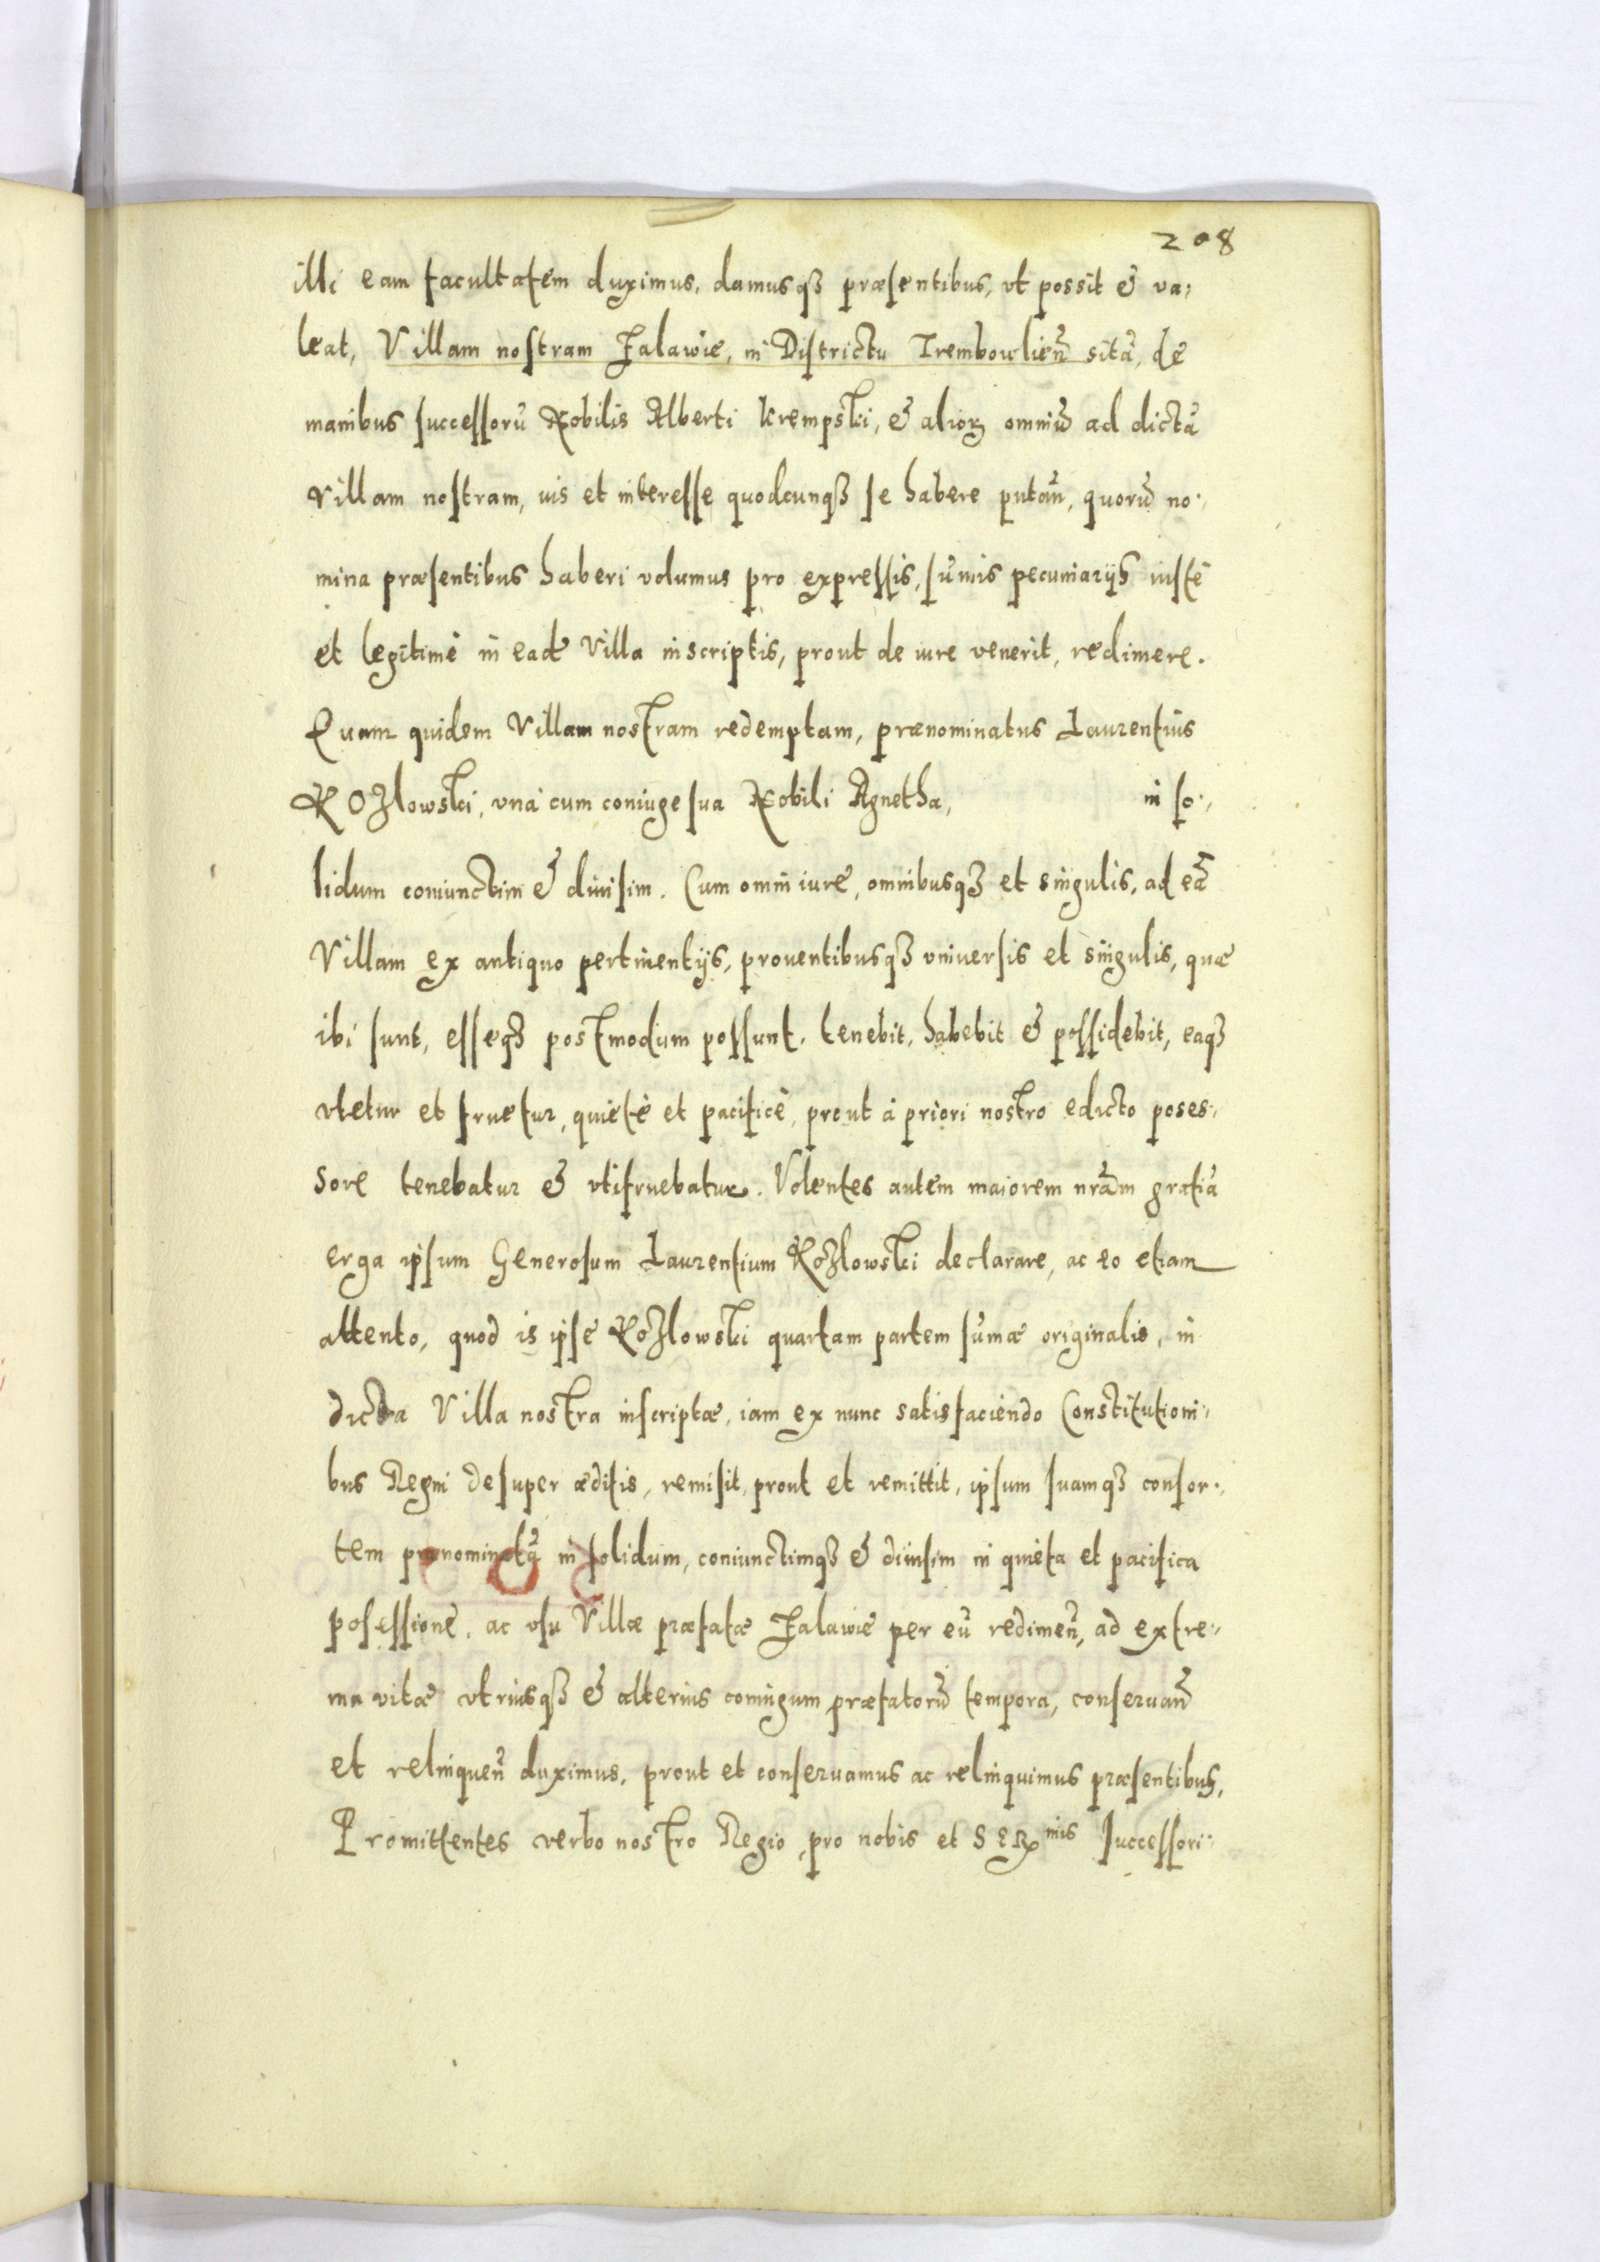 208
illi eam facultatem duximus, damusqȝ præsentibus, vt possit & va,
leat, Villam nostram Zalawie, in Districtu Trembowlien̄ sitā, de
manibus successorū Nobilis Alberti Krempski, & alioꝝ omniū ad dictā
Villam nostram, ius et interesse quodcunqȝ se habere putan̄, quorū no,
mina præsentibus haberi volumus pro expressis, sūmis pecuniarijs iustè
et legitimè in eadē Villa inscriptis, prout de iure venerit, redimere.
Quam quidem Villam nostram redemptam, prænominatus Laurentius
Kozlowski, vnà cum coniuge sua Nobili Agnetha, in so,
lidum coniunctim & diuisim. Cum omni iure, omnibusqȝ et singulis, ad eā
Villam ex antiquo pertinentijs, prouentibusqȝ vniuersis et singulis, quæ
ibi sunt, esseqȝ postmodum possunt, tenebit, habebit & possidebit, eaqȝ
vtetur et fruetur, quietè et pacificè, prout à priori nostro edicto poses,
sore tenebatur & vtifruebatur. Volentes autem maiorem nrām gratiā
erga ipsum Generosum Laurentium Kozlowski declarare, ac eo etiam
attento, quod is ipse Kozlowski quartam partem sūmæ originalis, in
dicta Villa nostra inscriptæ, iam ex nunc satisfaciendo Constitutioni,
bus Regni desuper æditis, remisit, prout et remittit, ipsum suamqȝ consor,
tem prænominatā in solidum, coniunctimqȝ & diuisim in quieta et pacifica
posessione, ac vsu Villæ præfatæ Zalawie per eū redimen̄, ad extre,
ma vitæ vtriusqȝ & alterius coniugum præfatorū tempora, conseruan̄
et relinquen̄ duximus, prout et conseruamus ac relinquimus præsentibus,
Promittentes verbo nostro Regio, pro nobis et SERmis Successori,